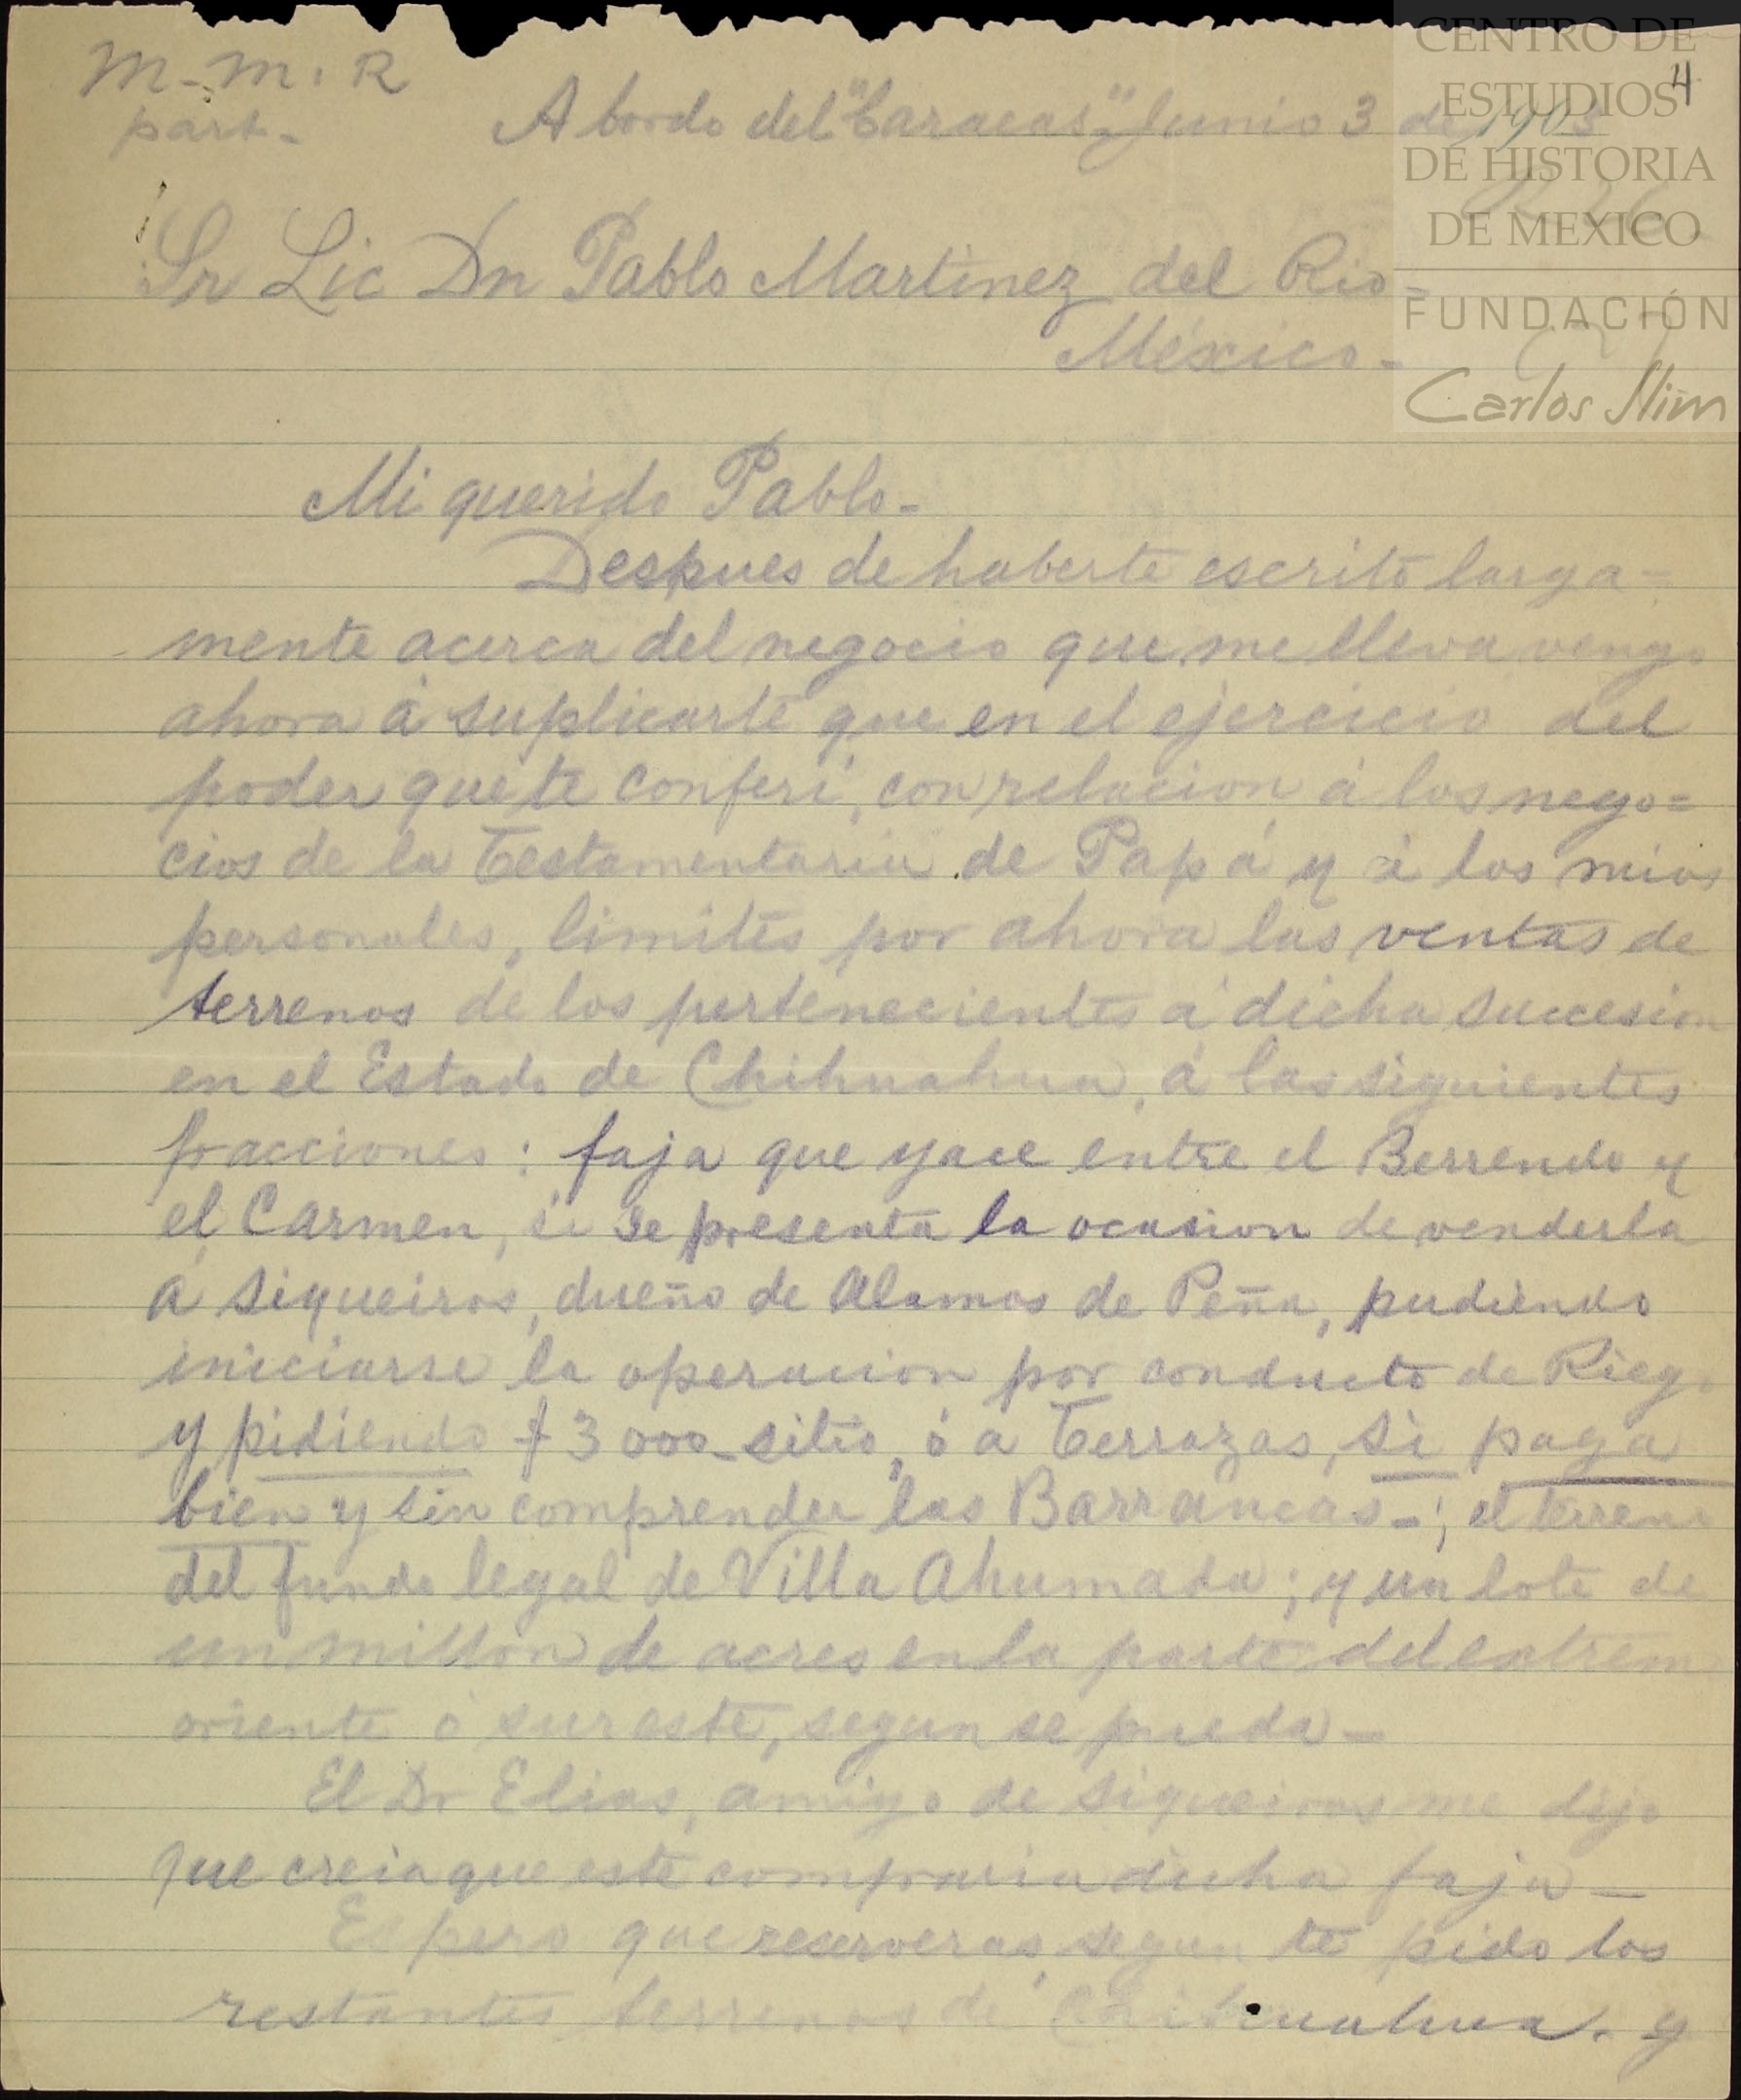 M-M. R
part.
4
A bordo del "Caracas", Junio 3 de 1903
Sr Lic Dn Pablo Martinez del Rio-
México-
Mi querido Pablo-
Despues de haberte escrito larga=
mente acerca del negocio que me lleva vengo
ahora á suplicarte que en el ejercicio del
poder que te conferí, con relacion á los nego=
cios de la Testamentaria de Papá y á los mios
personales, limites por ahora las ventas de
terrenos de los pertenecientes á dicha succesion
en el Estado de Chihuahua, á las siguientes
fracciones: faja que yace entre el Berrendo y
el Carmen, si se presenta la ocasion de venderla
á Siqueiros, dueño de Alamos de Peña, pudiendo
iniciarse la operacion por conducto de Riego
y pidiendo $ 3000- sitio, ó a Terrazas, si paga
bien y sin comprender las Barrancas-; el terreno
del fundo legal de Villa Ahumada; y un lote de
un millon de acres en la parte del extremo
oriente ó sureste, segun se pueda-
El Dr Elias, amigo de Siqueiros me dijo
que creia que este compraria dicha faja-
Espero que reserveras, segun te pido los
restantes terrenos de Chihuahua. y
CENTRO DE
ESTUDIOS
DE HISTORIA
DE MEXICO
FUNDACIÓN
Carlos Slim